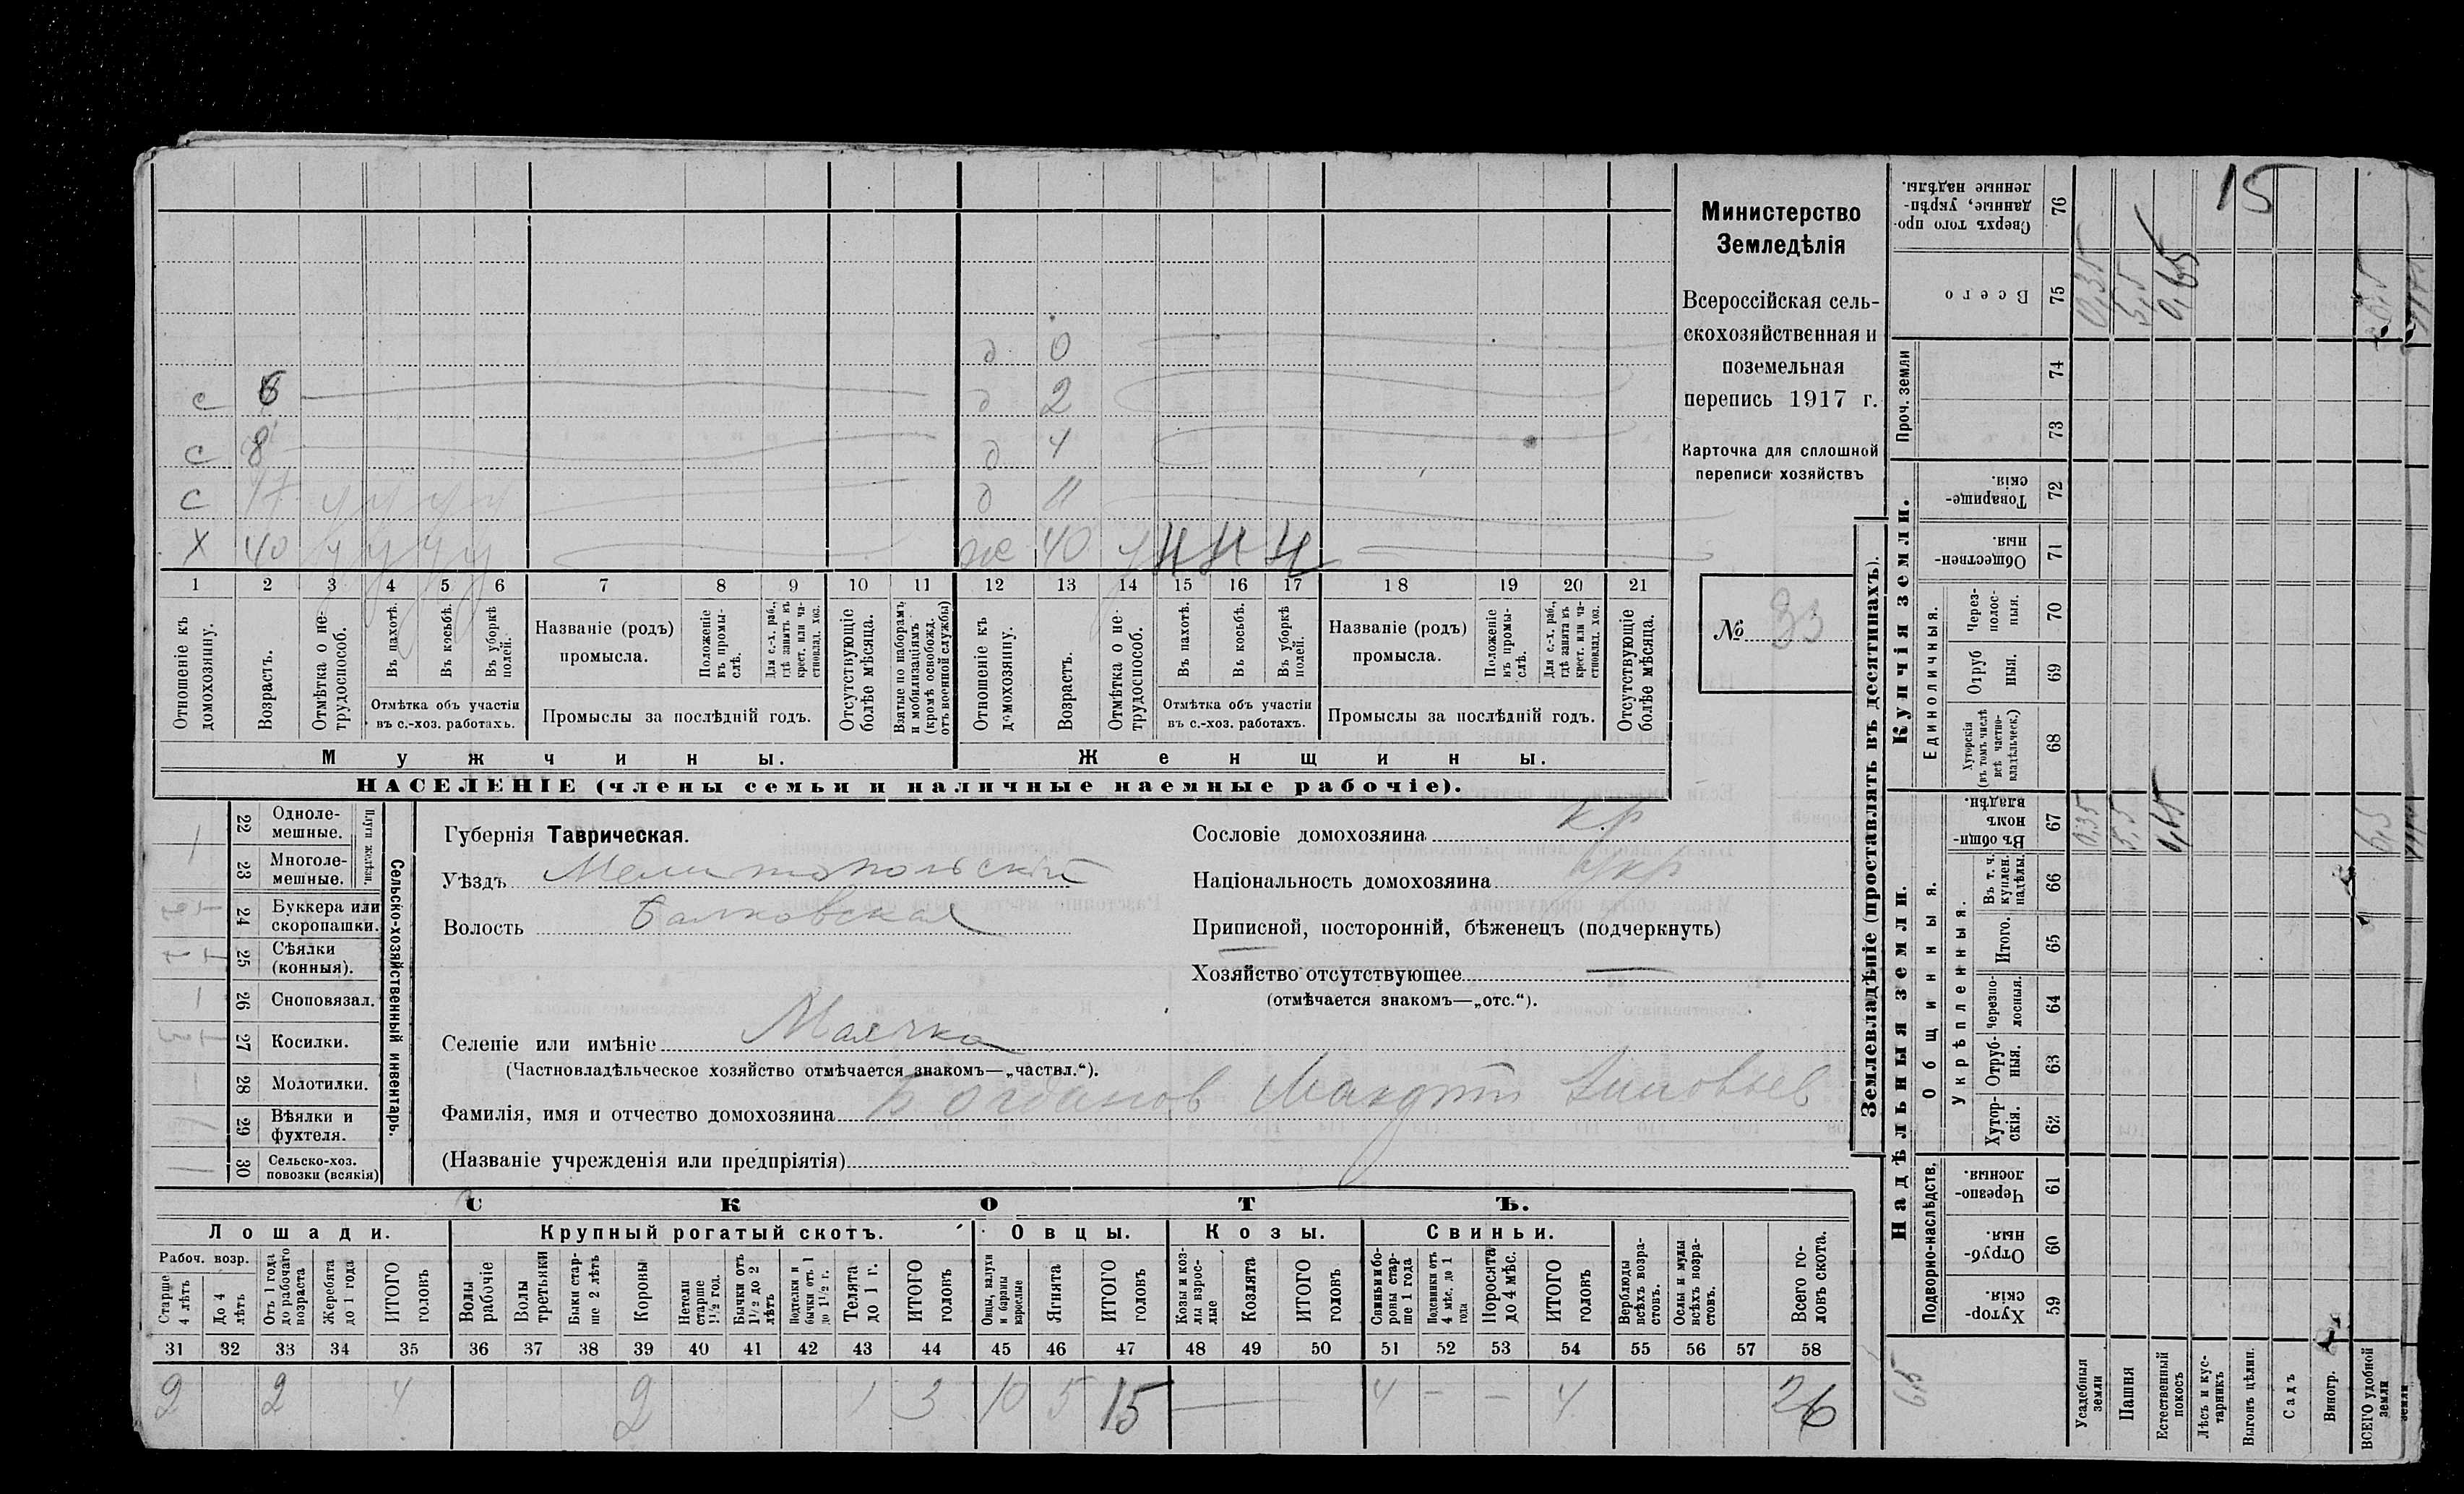 с 6 д 0
с 8 д 2
с 17 у у у у д 4
Х 40 у у у у д 11
ж 40 у
1 2 3 4 5 6 7 8 9 10 11 12 13 14 15 16 17 18 19 20 21
Отношеніе къ домохозяину.
Возрастъ.
Отмѣтка о нетрудоспособ.
Въ пахотѣ.
Въ косьбѣ.
Въ уборкѣ полей.
Отмѣтка объ участіи
въ с.-хоз. работахъ.
Названіе (родъ)
промысла.
Положеніе въ промы-
слѣ.
Для с.-х. раб.,
гдѣ занятъ въ
крест. или ча-
стновлад. хоз.
Промыслы за послѣдній годъ.
Отсутствующіе
болѣе мѣсяца.
Взятые по наборамъ
и мобилизаціямъ
(кромѣ освобожд.
отъ военной службы)
Отношеніе къ
домохозяину.
Возрастъ.
Отмѣтка о не-
трудоспособ.
Въ пахотѣ.
Въ косьбѣ.
Въ уборкѣ
полей.
Отмѣтка объ участіи
въ с.-хоз. работахъ.
Названіе (родъ)
промысла.
Положеніе
въ промы-
слѣ.
Для с.-х. раб.,
гдѣ занята въ
крест. или ча-
стновлад. хоз.
Промыслы за послѣдній годъ.
Отсутствующіе
болѣе мѣсяца.
Мужчины.
Женщины.
НАСЕЛЕНІЕ (члены семьи и наличные наемные рабочіе).
Министерство
Земледѣлія
Всероссійская сель-
скохозяйственная и
поземельная
перепись 1917 г.
Карточка для сплошной
переписи хозяйствъ
№ 33
Сельско-хозяйственный инвентарь.
Плуги желѣзн.
22 Одноле-
мешные.
23 Многоле-
мешные.
24 Буккера или
скоропашки.
25 Сѣялки
(конныя).
26 Сноповязал.
27 Косилки.
28 Молотилки.
29 Вѣялки и
фухтеля.
30 Сельско-хоз.
повозки (всякія)
Губернія Таврическая.
Уѣздъ Мелитопольскій
Волость Балковская
Селеніе или имѣніе Маячка
(Частновладѣльческое хозяйство отмѣчается знакомъ—„частвл.“).
Фамилія, имя и отчество домохозяина Богданов Зиновьев
(Названіе учрежденія или предпріятія)
Сословіе домохозяина кр
Національность домохозяина укр
Приписной, посторонній, бѣженецъ (подчеркнуть)
Хозяйство отсутствующее —
(отмѣчается знакомъ—„отс.“).
СКОТЪ.
Лошади.
Крупный рогатый скотъ.
Овцы.
Козы.
Свиньи.
Рабоч. возр.
Старше
4 лѣтъ
До 4
лѣтъ
Отъ 1 года
до рабочаго
возраста
Жеребята
до 1 года
ИТОГО
головъ
Волы
рабочіе
Волы
третьяки
Быки стар-
ше 2 лѣтъ
Коровы
Нетели
старше
1½ год.
Бычки отъ
1½ до 2
лѣтъ
Подтелки и
бычки отъ 1
до 1½ г.
Телята
до 1 г.
ИТОГО
головъ
Овцы, валухи
и бараны
взрослые
Ягнята
ИТОГО
головъ
Козы и коз-
лы взрос-
лые
Козлята
ИТОГО
головъ
Свиньи и бо-
ровы стар-
ше 1 года
Подсвинки отъ
4 мѣс. до 1
года
Поросята
до 4 мѣс.
ИТОГО
головъ
Верблюды
всѣхъ возра-
стовъ.
Ослы и мулы
всѣхъ возра-
стовъ.
Всего го-
ловъ скота.
31 32 33 34 35 36 37 38 39 40 41 42 43 44 45 46 47 48 49 50 51 52 53 54 55 56 57 58
2 2 4 2 1 3 10 5 15 — 4 — — 4 26
Землевладѣніе (проставлять въ десятинахъ).
Надѣльныя земли.
Купчія земли.
Проч. земли
Подворно-наслѣдств.
Общинныя.
Укрѣпленныя.
Единоличныя.
Сверхъ того про-
данные, укрѣп-
ленные надѣлы. 76
Всего 75
74
73
Товарище-
скія. 72
Обществен-
ныя. 71
Через-
полос-
ныя. 70
Отруб
ныя. 69
Хуторскія
(въ томъ числѣ
всѣ частно-
владѣльческ.) 68
Въ общин-
номъ
владѣн. 67
Въ т. ч.
куплен.
надѣлы. 66
Итого. 65
Черезпо-
лосныя. 64
Отруб-
ныя. 63
Хутор-
скія. 62
Черезпо-
лосныя. 61
Отруб-
ныя. 60
Хутор-
скія. 59
15
0,35
5,5
0,65
6,5
0,35
5,5
0,65
6,5
6,5
Усадебныя
земли
Пашня
Естественный
покосъ
Лѣсъ и кус-
тарникъ
Выгонъ цѣлин.
Садъ
Виногр.
ВСЕГО удобной
земли